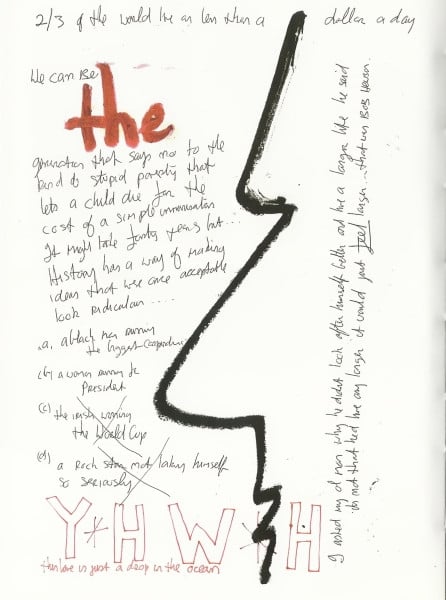 2/3 of the world live on less than a dollar a day
We can be
the
generation that says no to the
kind of stupid poverty that
lets a child die for the
cost of a simple immunisation
It might take forty years but...
History has a way of making
ideas that were once acceptable
look ridiculous.....
a. a black man running
the biggest Corporation
(b) a woman running for
President
(c) the irish winning
the World Cup
(d) a rock star not taking himself
so seriously
Y*HW*H
this love is just a drop in the ocean
I asked my old man why he didnt look after himself better and live a longer life he said
its not that he'd live any longer it would just feel longer... that was Bob Hewson..